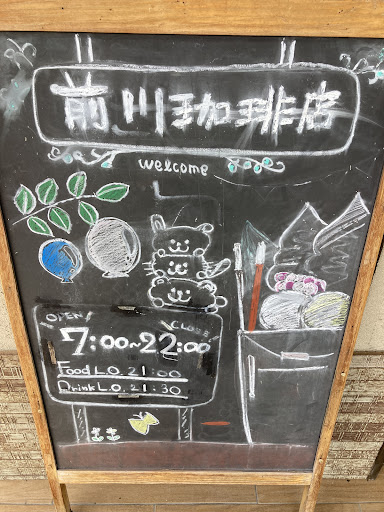 前川珈琲店
welcome
OPEN CLOSE
7:00~22:00
Food L.O. 21:00
Drink L.O. 21:30